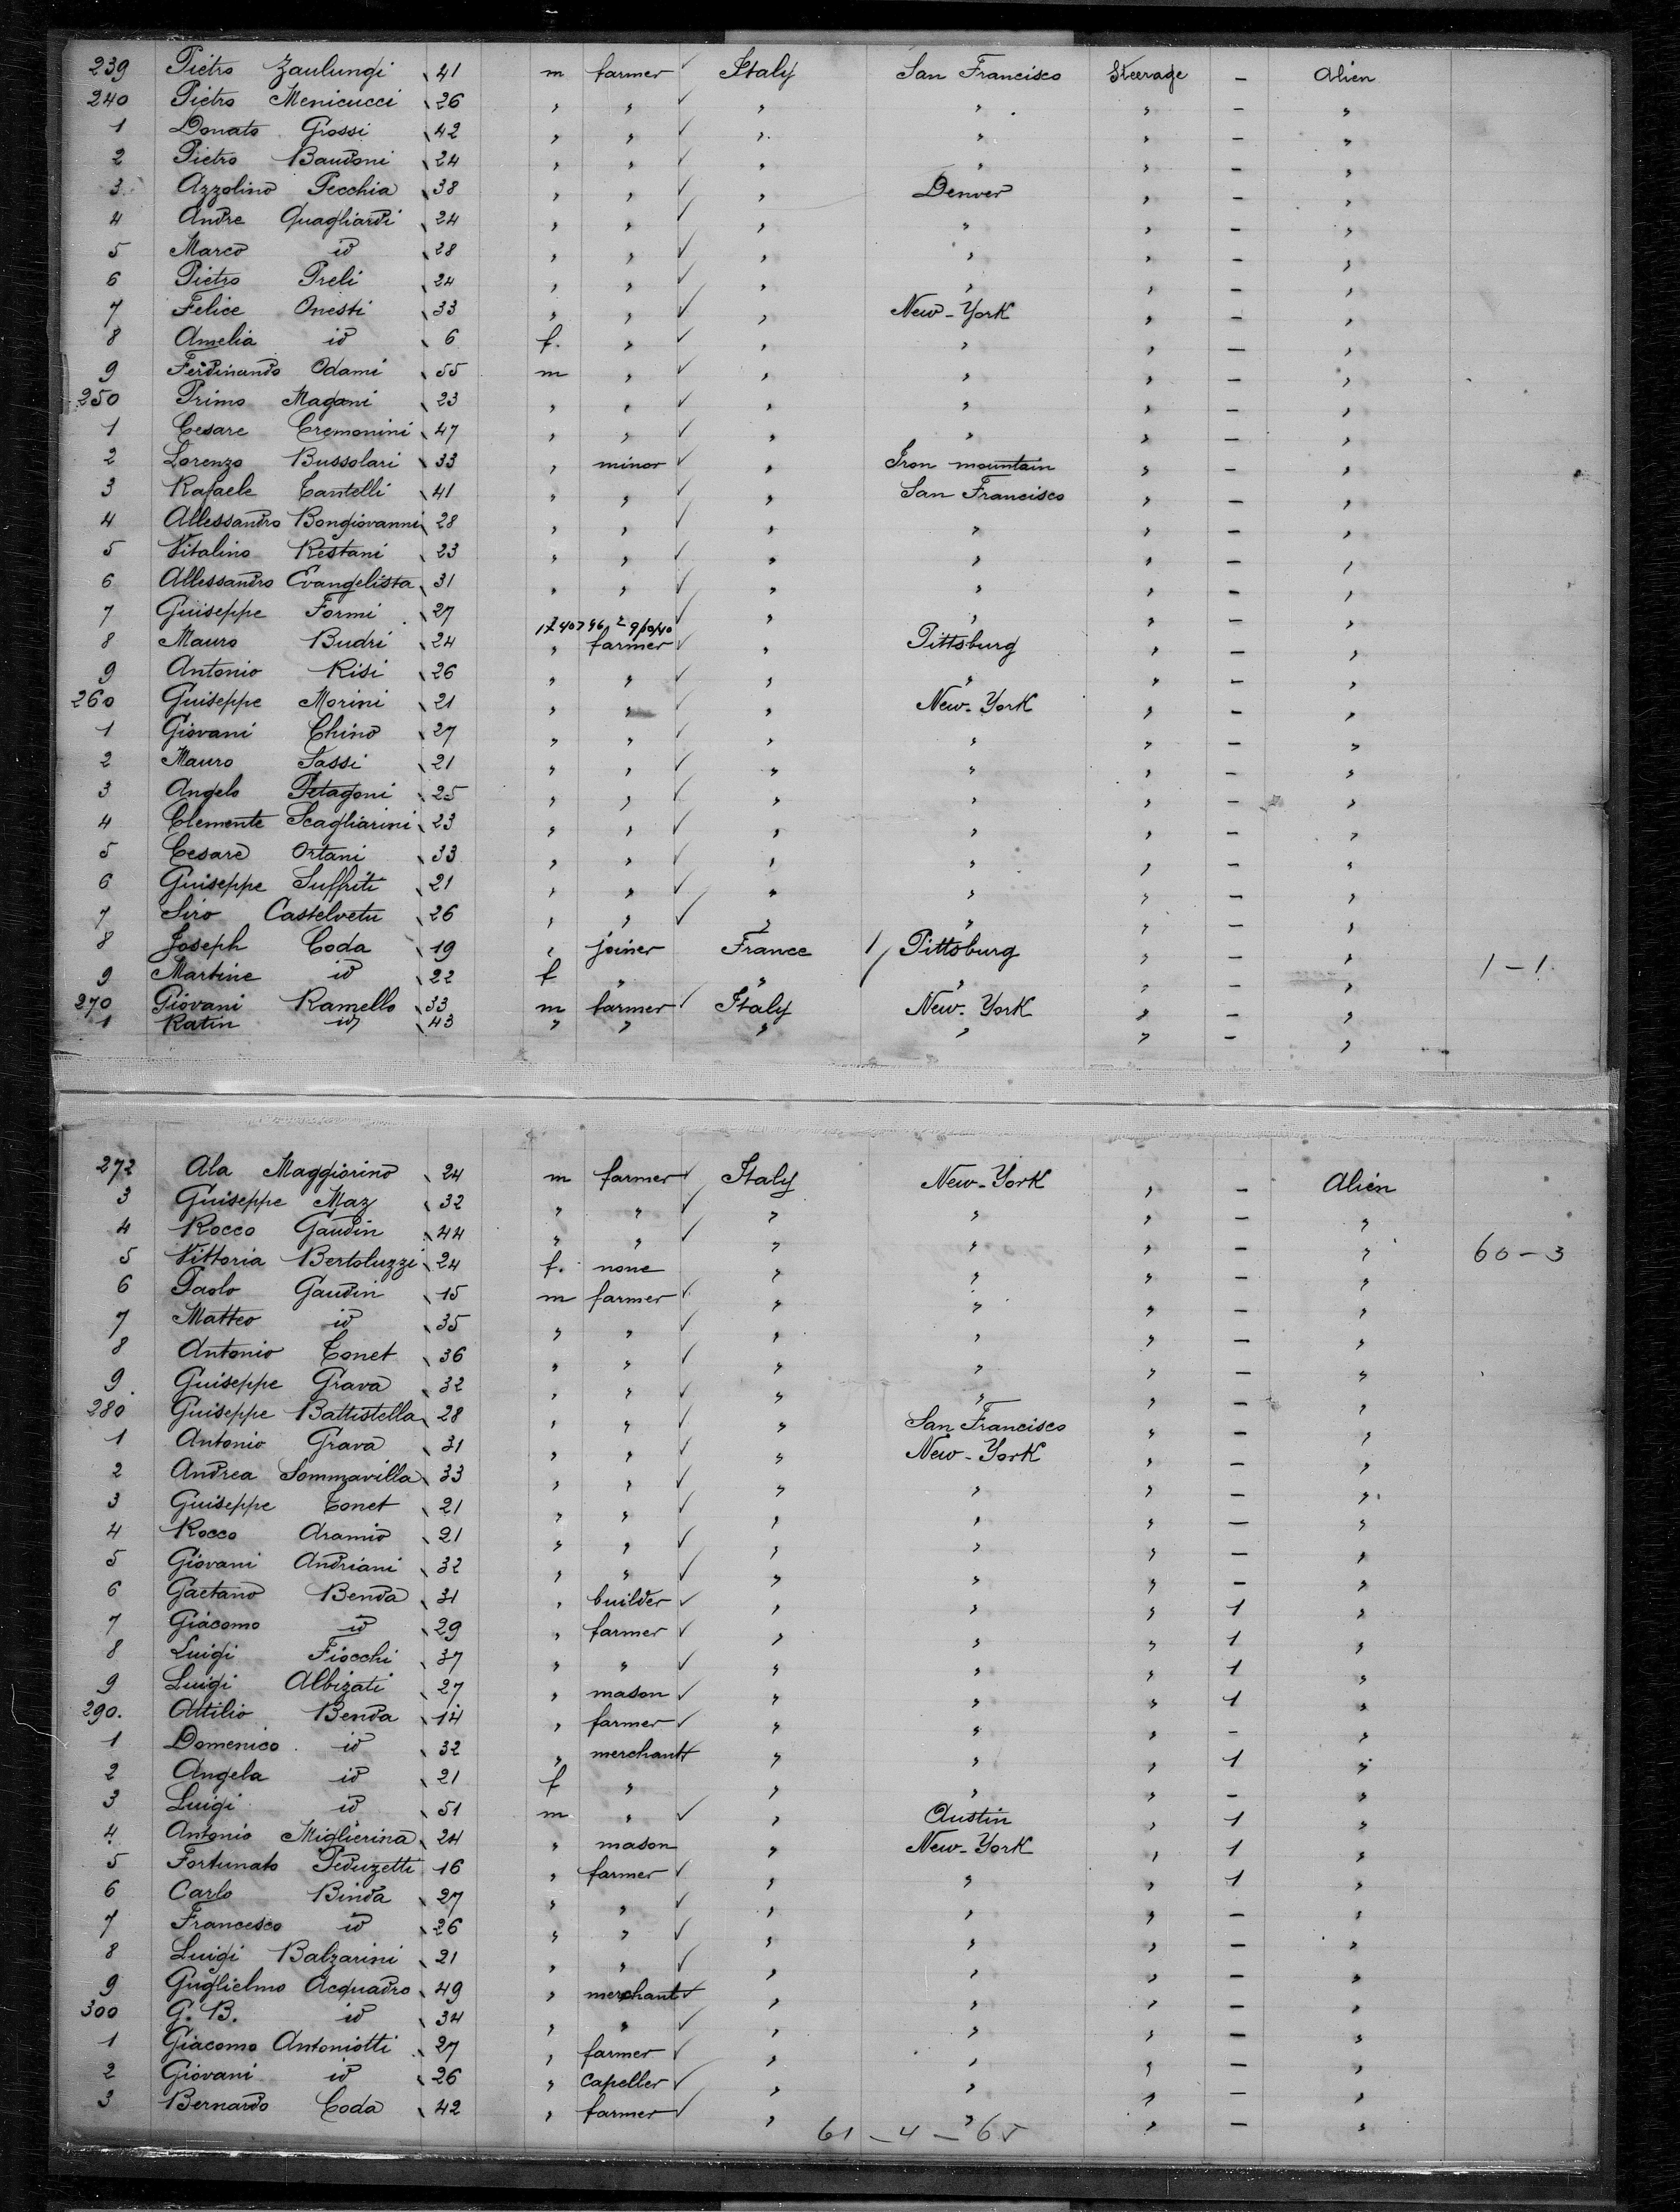 239 Pietro Zaulungi 41 m farmer ✓ Italy San Francisco Steerage - Alien
240 Pietro Menicucci 26 " " ✓ " " " - "
1 Donato Grossi 42 " " ✓ " " " - "
2 Pietro Baudoni 24 " " ✓ " " " - "
3 Azzolino Pecchia 38 " " ✓ " Denver " - "
4 Andre Quagliardi 24 " " ✓ " " " - "
5 Marco id 28 " " ✓ " " " - "
6 Pietro Preli 24 " " ✓ " " " - "
7 Felice Onesti 33 " " ✓ " New-York " - "
8 Amelia id 6 f. " ✓ " " " - "
9 Ferdinando Odami 55 m " ✓ " " " - "
250 Primo Magani 23 " " ✓ " " " - "
1 Cesare Cremonini 47 " " ✓ " " " - "
2 Lorenzo Bussolari 33 " minor ✓ " Iron mountain " - "
3 Rafaele Tantelli 41 " " ✓ " San Francisco " - "
4 Allessandro Bongiovanni 28 " " ✓ " " " - "
5 Vitalino Restani 23 " " ✓ " " " - "
6 Allessandro Evangelista 31 " " ✓ " " " - "
7 Guiseppe Formi 27 ✓ " " " - "
8 Mauro Budri 24 " farmer ✓ " Pittsburg " - "
9 Antonio Risi 26 " " ✓ " " " - "
260 Guiseppe Morini 21 " " ✓ " New-York " - "
1 Giovani Chino 27 " " ✓ " " " - "
2 Mauro Sassi 21 " " ✓ " " " - "
3 Angelo Petagoni 25 " " ✓ " " " - "
4 Clemente Scagliarini 23 " " ✓ " " " - "
5 Cesare Ortani 33 " " ✓ " " " - "
6 Guiseppe Suffriti 21 " " ✓ " " " - "
7 Siro Castelvetu 26 " " ✓ " " " - "
8 Joseph Coda 19 " joiner France 1/ Pittsburg " - "
9 Martine id 22 f " " " " - " 1-1
270 Giovani Ramello 33 m farmer ✓ Italy New-York " - "
1 Ratin id 43 " " " " " - "
272 Ala Maggiorino 24 m farmer ✓ Italy New-York " - Alien
3 Guiseppe Maz 32 " " ✓ " " " - "
4 Rocco Gaudin 44 " " ✓ " " " - "
5 Vittoria Bertoluzzi 24 f. none " " " - " 60-3
6 Paolo Gaudin 15 m farmer ✓ " " " - "
7 Matteo id 35 " " ✓ " " " - "
8 Antonio Tonet 36 " " ✓ " " " - "
9 Guiseppe Grava 32 " " ✓ " " " - "
280 Guiseppe Battistella 28 " " ✓ " San Francisco " - "
1 Antonio Grava 31 " " ✓ " New-York " - "
2 Andrea Sommavilla 33 " " ✓ " " " - "
3 Guiseppe Tonet 21 " " ✓ " " " - "
4 Rocco Aramio 21 " " ✓ " " " - "
5 Giovani Andriani 32 " " ✓ " " " - "
6 Gaetano Benda 31 " builder ✓ " " " 1 "
7 Giacomo id 29 " farmer ✓ " " " 1 "
8 Luigi Fiocchi 37 " " ✓ " " " 1 "
9 Luigi Albizati 27 " mason ✓ " " " 1 "
290. Attilio Benda 14 " farmer ✓ " " " - "
1 Domenico id 32 " merchant ✓ " " " 1 "
2 Angela id 21 f " " " " - "
3 Luigi id 51 m " ✓ " Austin " 1 "
4. Antonio Miglierina 24 " mason " New-York " 1 "
5 Fortunato Peduzetti 16 " farmer ✓ " " " 1 "
6 Carlo Binda 27 " " ✓ " " " - "
7 Francesco id 26 " " ✓ " " " - "
8 Luigi Balzarini 21 " " ✓ " " " - "
9 Guglielmo Acquadro 49 " merchant ✓ " " " - "
300 G. B. id 34 " " ✓ " " " - "
1 Giacomo Antoniotti 27 " farmer ✓ " " " - "
2 Giovani id 26 " capeller ✓ " " " - "
3 Bernardo Coda 42 " farmer ✓ " " " - "
61-4-65